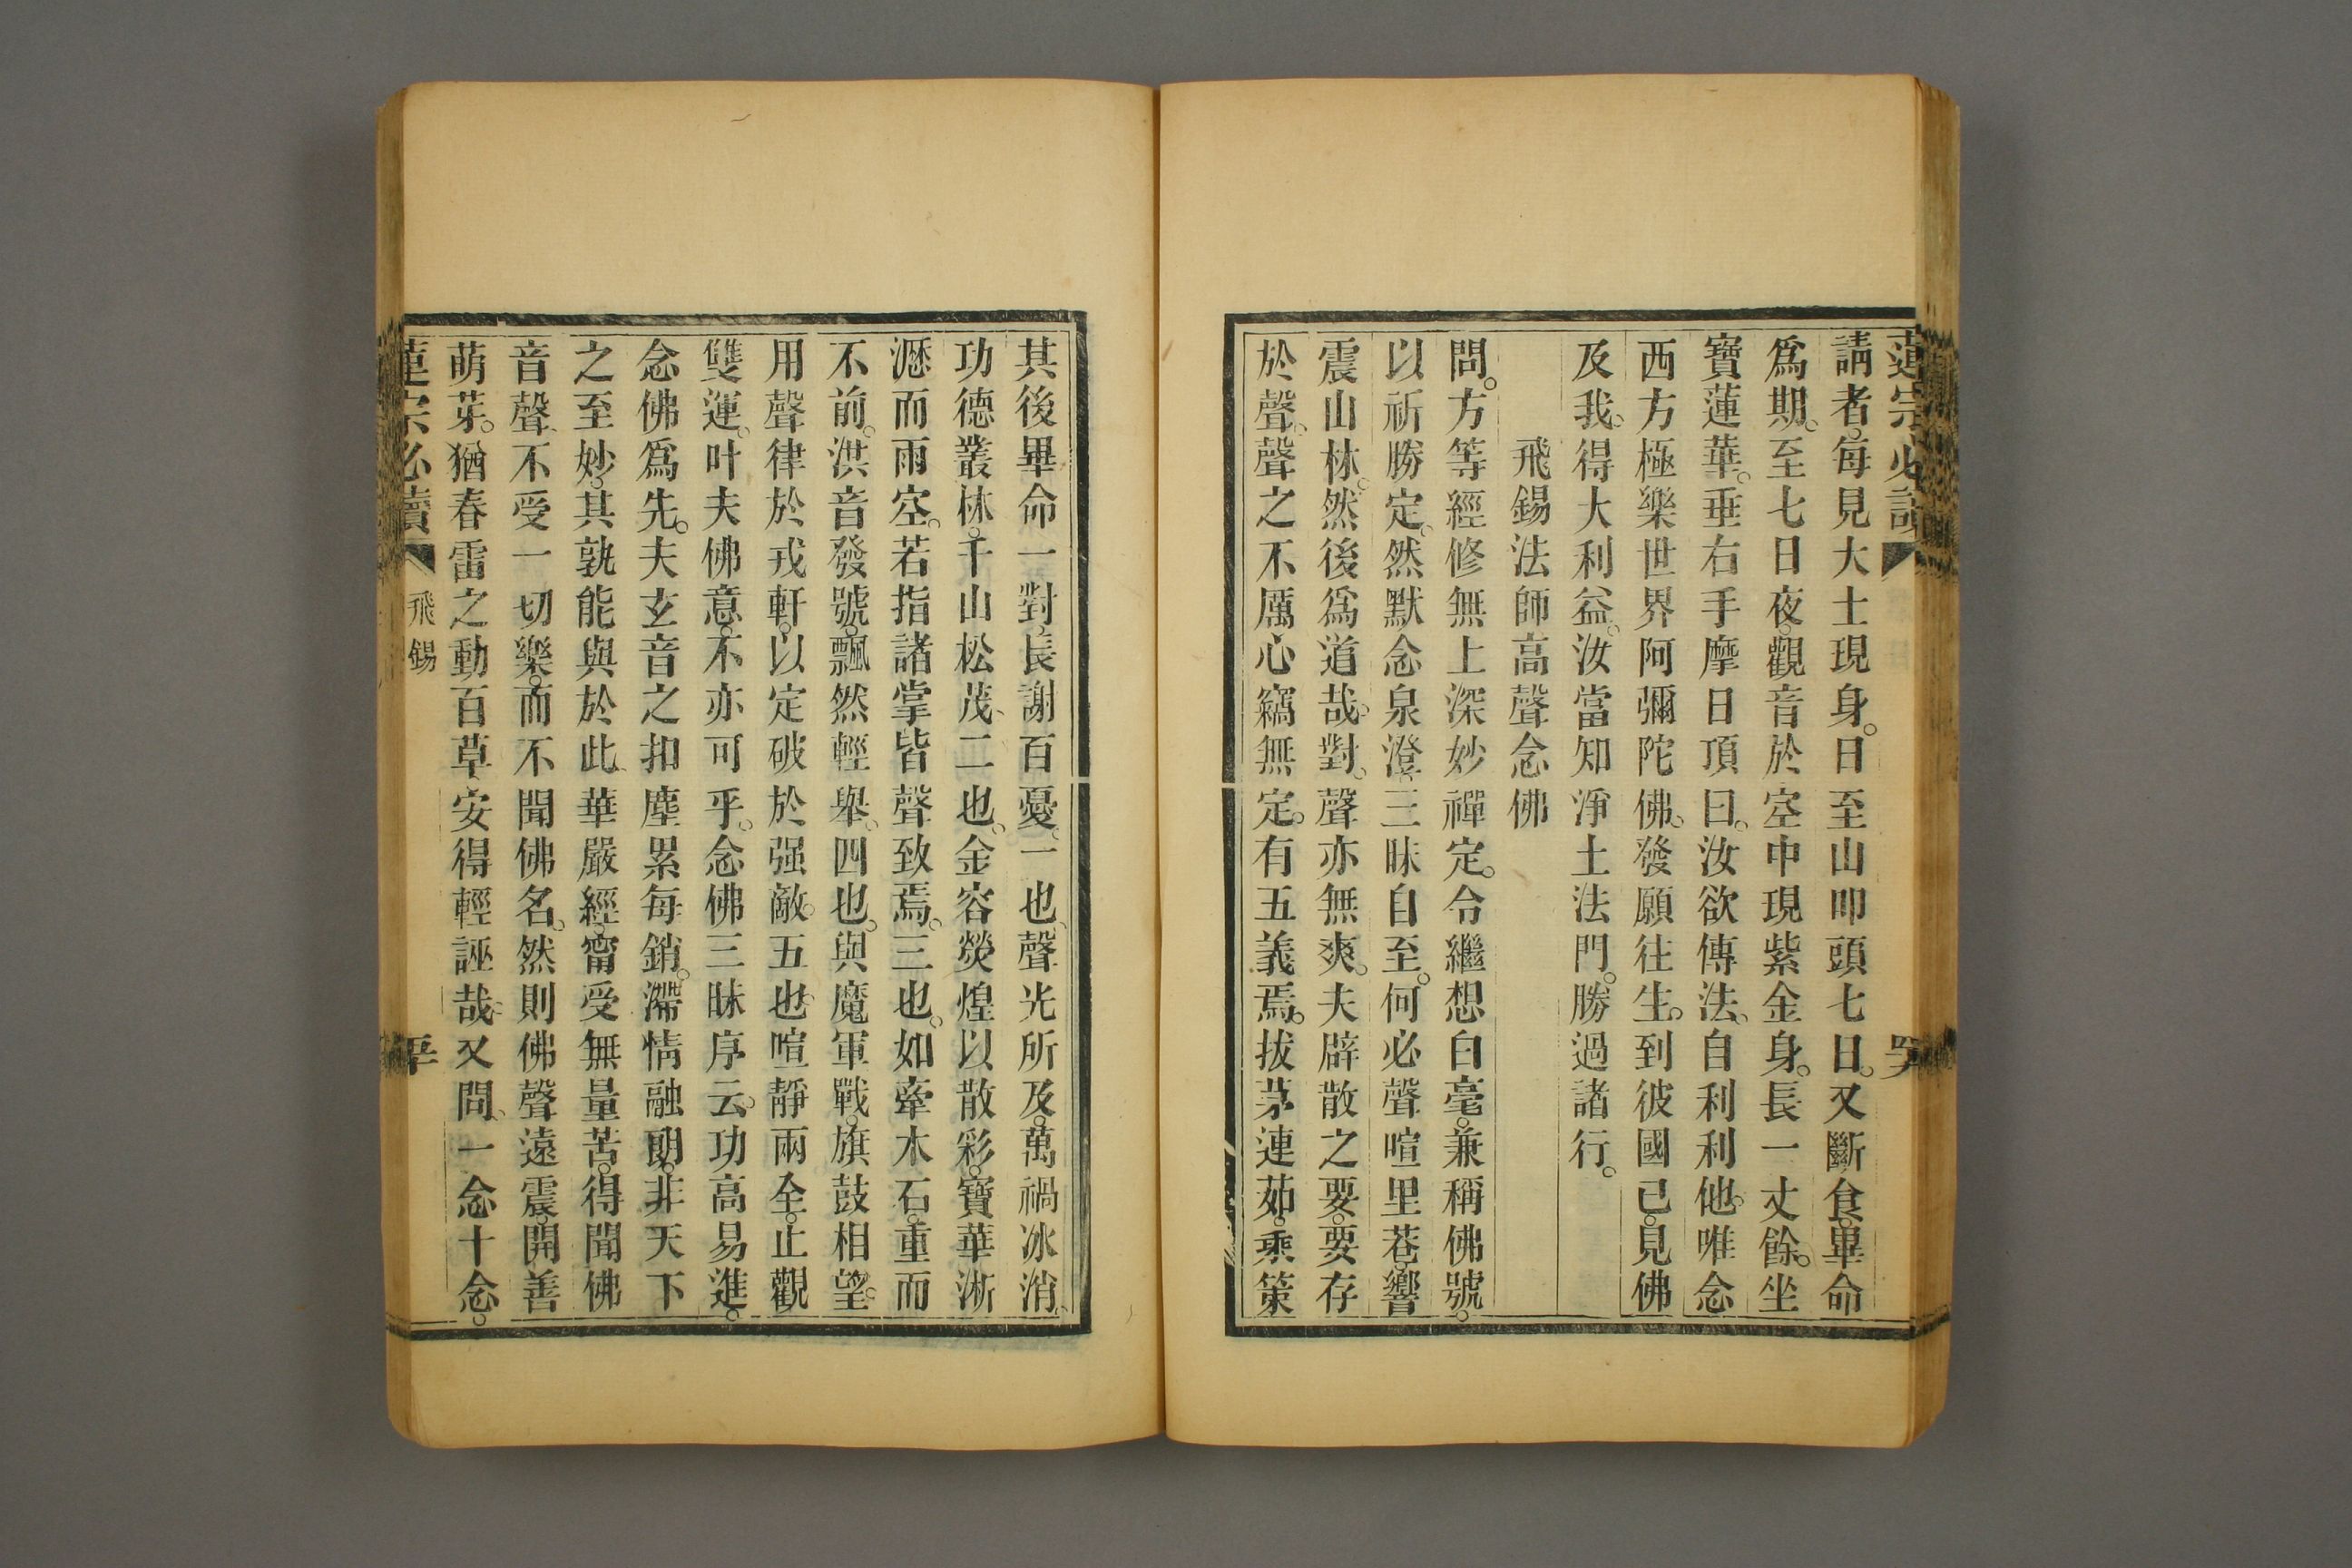 蓮宗必讀
請者。每見大士現身。日至山叩頭七日。又斷食。畢命
爲期。至七日夜。觀音於空中現紫金身。長一丈餘。坐
寶蓮華。垂右手摩日頂曰。汝欲傳法。自利利他。唯念
西方極樂世界阿彌陀佛。發願往生。到彼國已。見佛
及我。得大利益。汝當知淨土法門。勝過諸行。
飛錫法師高聲念佛
問。方等經修無上深妙禪定。令繼想白毫。兼稱佛號。
以祈勝定。然默念泉澄。三昧自至。何必聲喧里巷。響
震山林。然後爲道哉。對。聲亦無爽。夫辟散之要。要存
於聲。聲之不厲。心竊無定。有五義焉。拔茅連茹。乘策
其後。畢命一對。長謝百憂。一也。聲光所及。萬禍冰消。
功德叢林。千山松茂。二也。金容熒煌以散彩。寶華淅
瀝而雨空。若指諸掌。皆聲致焉。三也。如牽木石。重而
不前。洪音發號。飄然輕舉。四也。與魔軍戰。旗鼓相望。
用聲律於戎軒。以定破於强敵。五也。喧靜兩全。止觀
雙運。叶夫佛意。不亦可乎。念佛三昧序云。功高易進。
念佛爲先。夫玄音之扣。塵累每銷。滯情融朗。非天下
之至妙。其孰能與於此。華嚴經。甯受無量苦。得聞佛
音聲。不受一切樂。而不聞佛名。然則佛聲遠震。開善
萌芽。猶春雷之動百草。安得輕誣哉。又問。一念十念。
蓮宗必讀
飛錫